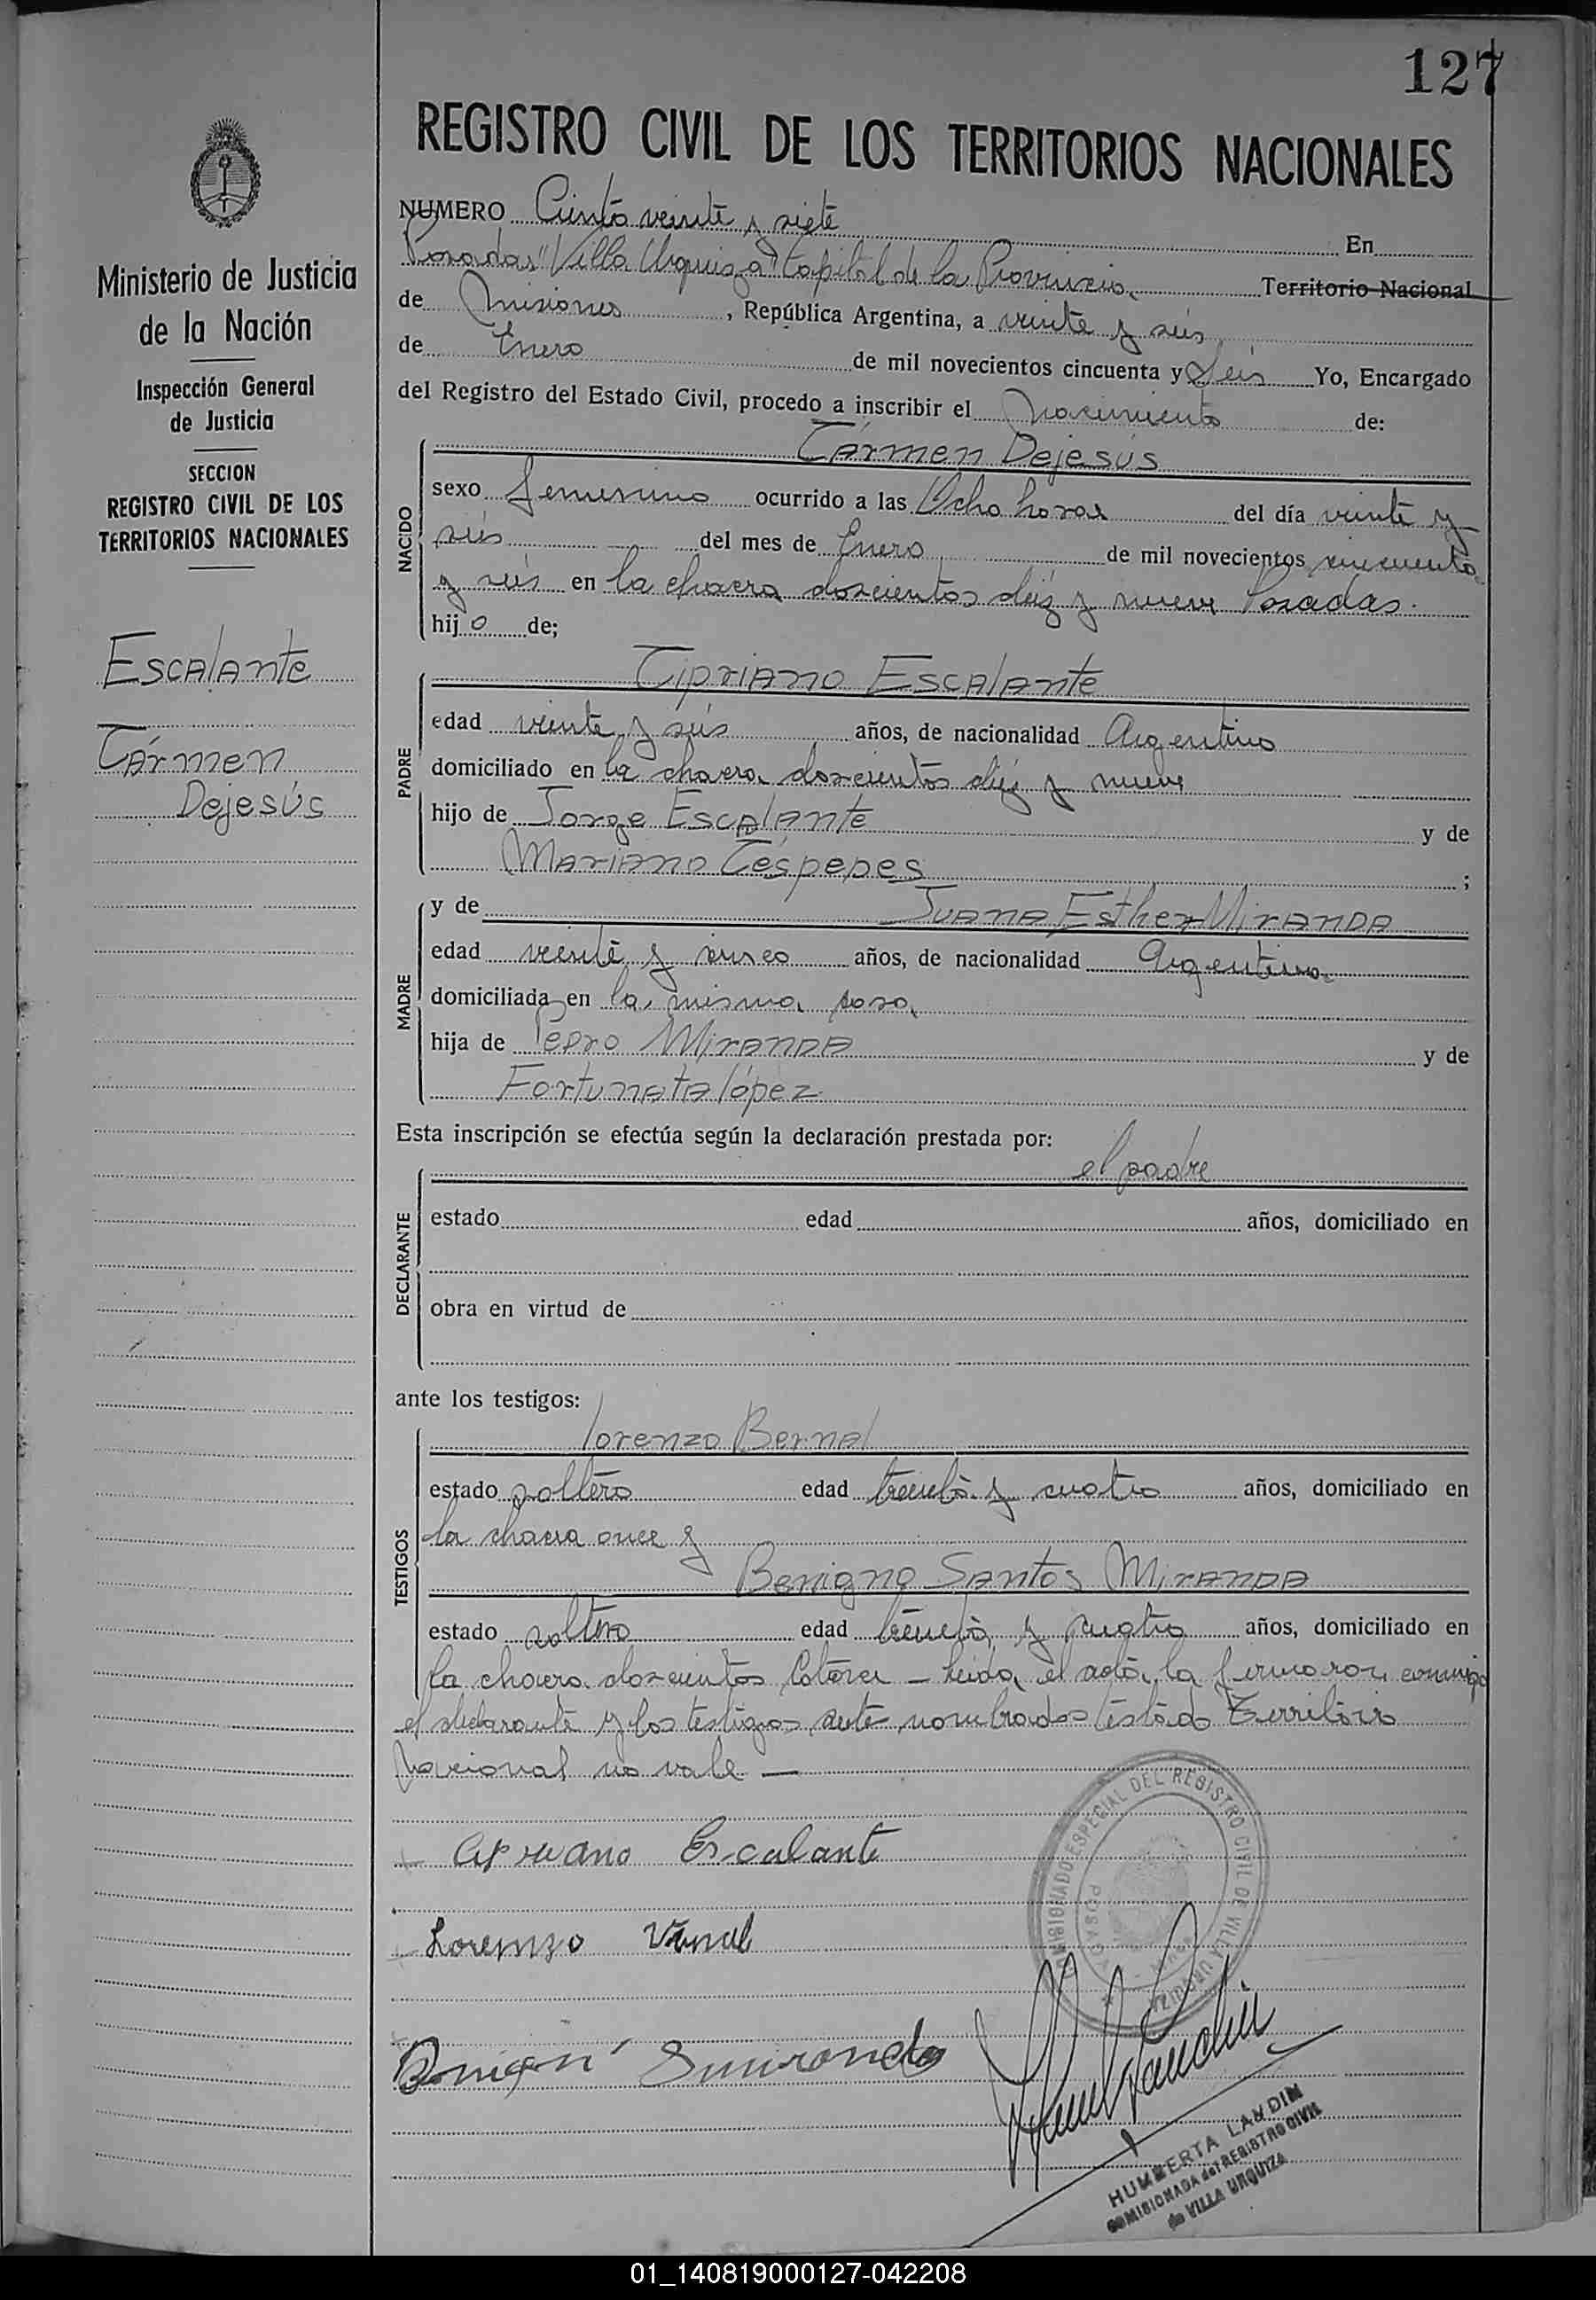 127
REGISTRO CIVIL DE LOS TERRITORIOS NACIONALES
Ministerio de Justicia
de la Nación
Inspección General
de Justicia
SECCION
REGISTRO CIVIL DE LOS
TERRITORIOS NACIONALES
Escalante
Cármen
Dejesús
NUMERO Ciento veinte y siete En
Posadas "Villa Urquiza" Capital de la Provincia Territorio Nacional
de Misiones, República Argentina, a veinte y seis
de Enero de mil novecientos cincuenta y Seis Yo, Encargado
del Registro del Estado Civil, procedo a inscribir el Nacimiento de:
NACIDO
Cármen Dejesús
sexo femenino ocurrido a las Ocho horas del día veinte y
seis del mes de Enero de mil novecientos cincuenta
y seis en la chacra doscientos diéz y nueve Posadas.
hijo de;
PADRE
Cipriano Escalante
edad veinte y seis años, de nacionalidad Argentino
domiciliado en la chacra doscientos diéz y nueve
hijo de Jorge Escalante y de
Mariano Céspedes ;
MADRE
y de Juana Esther Miranda
edad veinte y cinco años, de nacionalidad Argentina
domiciliada en la misma casa
hija de Pedro Miranda y de
Fortunata lópez
Esta inscripción se efectúa según la declaración prestada por:
el padre
DECLARANTE
estado edad años, domiciliado en
obra en virtud de
ante los testigos:
TESTIGOS
lorenzo Bernal
estado soltero edad treinta y cuatro años, domiciliado en
la chacra once y
Benigno Santos Miranda
estado soltero edad treinta y cuatro años, domiciliado en
la chacra doscientos Catorce - Leida el acta, la firmaron conmigo
el declarante y los testigos ante nombrados testado Territorio
Nacional no vale —
Cipriano Escalante
Lorenzo Vernal
COMISIONADO ESPECIAL DEL REGISTRO CIVIL DE VILLA URQUIZA
POSADAS
HUMBERTA LANDIN
COMISIONADA del REGISTRO CIVIL
de VILLA URQUIZA
01_140819000127-042208